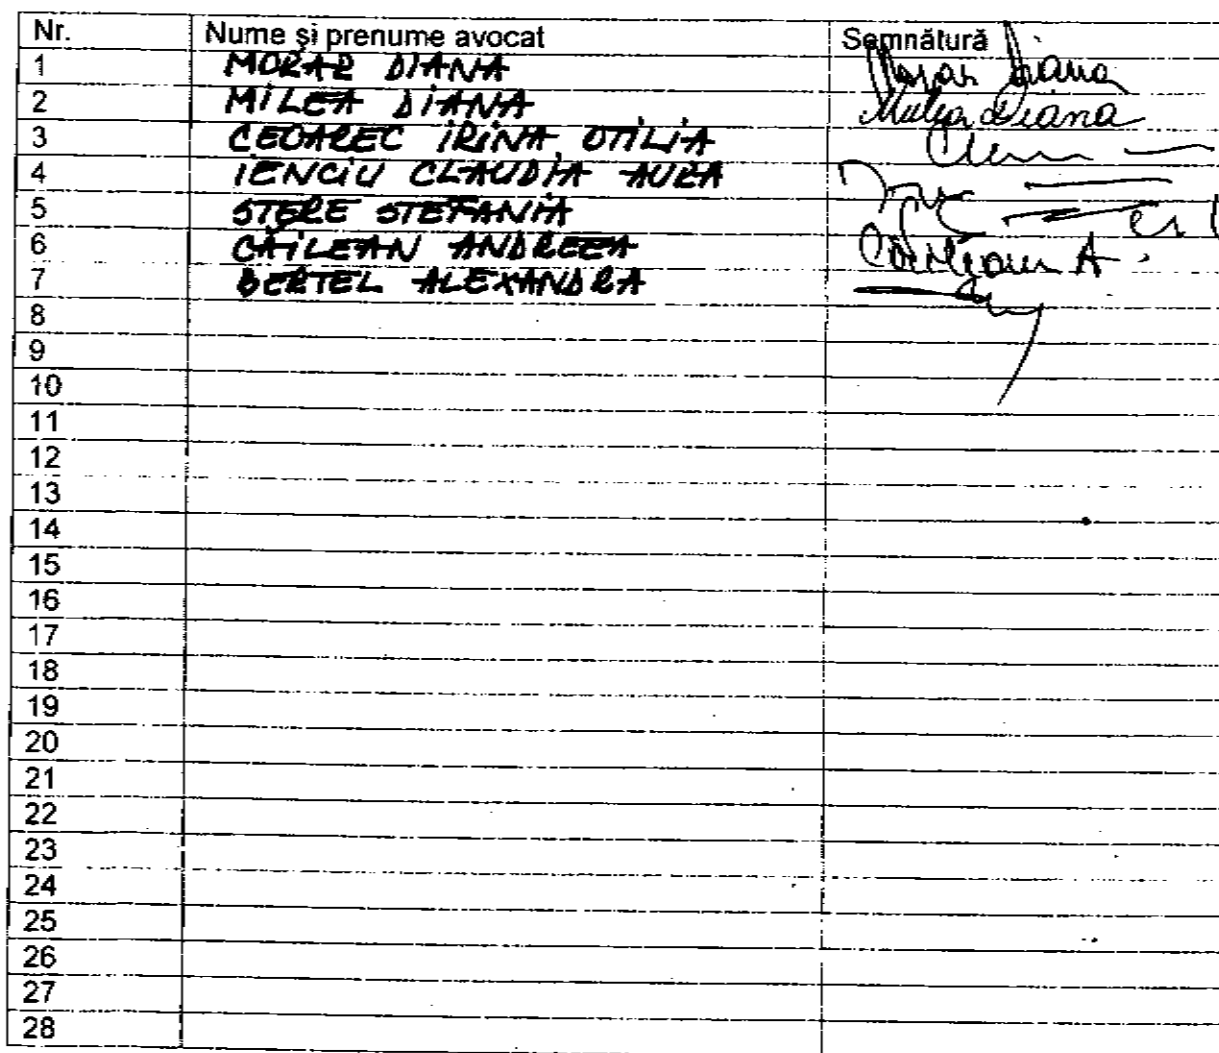 Nr. Nume și prenume avocat Semnătură
1 MORAR DIANA Morar Diana
2 MILEA DIANA Milea Diana
3 CEOAREC IRINA OTILIA
4 IENCIU CLAUDIA AURA
5 STERE STEFANIA
6 CĂILEAN ANDREEA Căilean A.
7 BERTEL ALEXANDRA
8
9
10
11
12
13
14
15
16
17
18
19
20
21
22
23
24
25
26
27
28